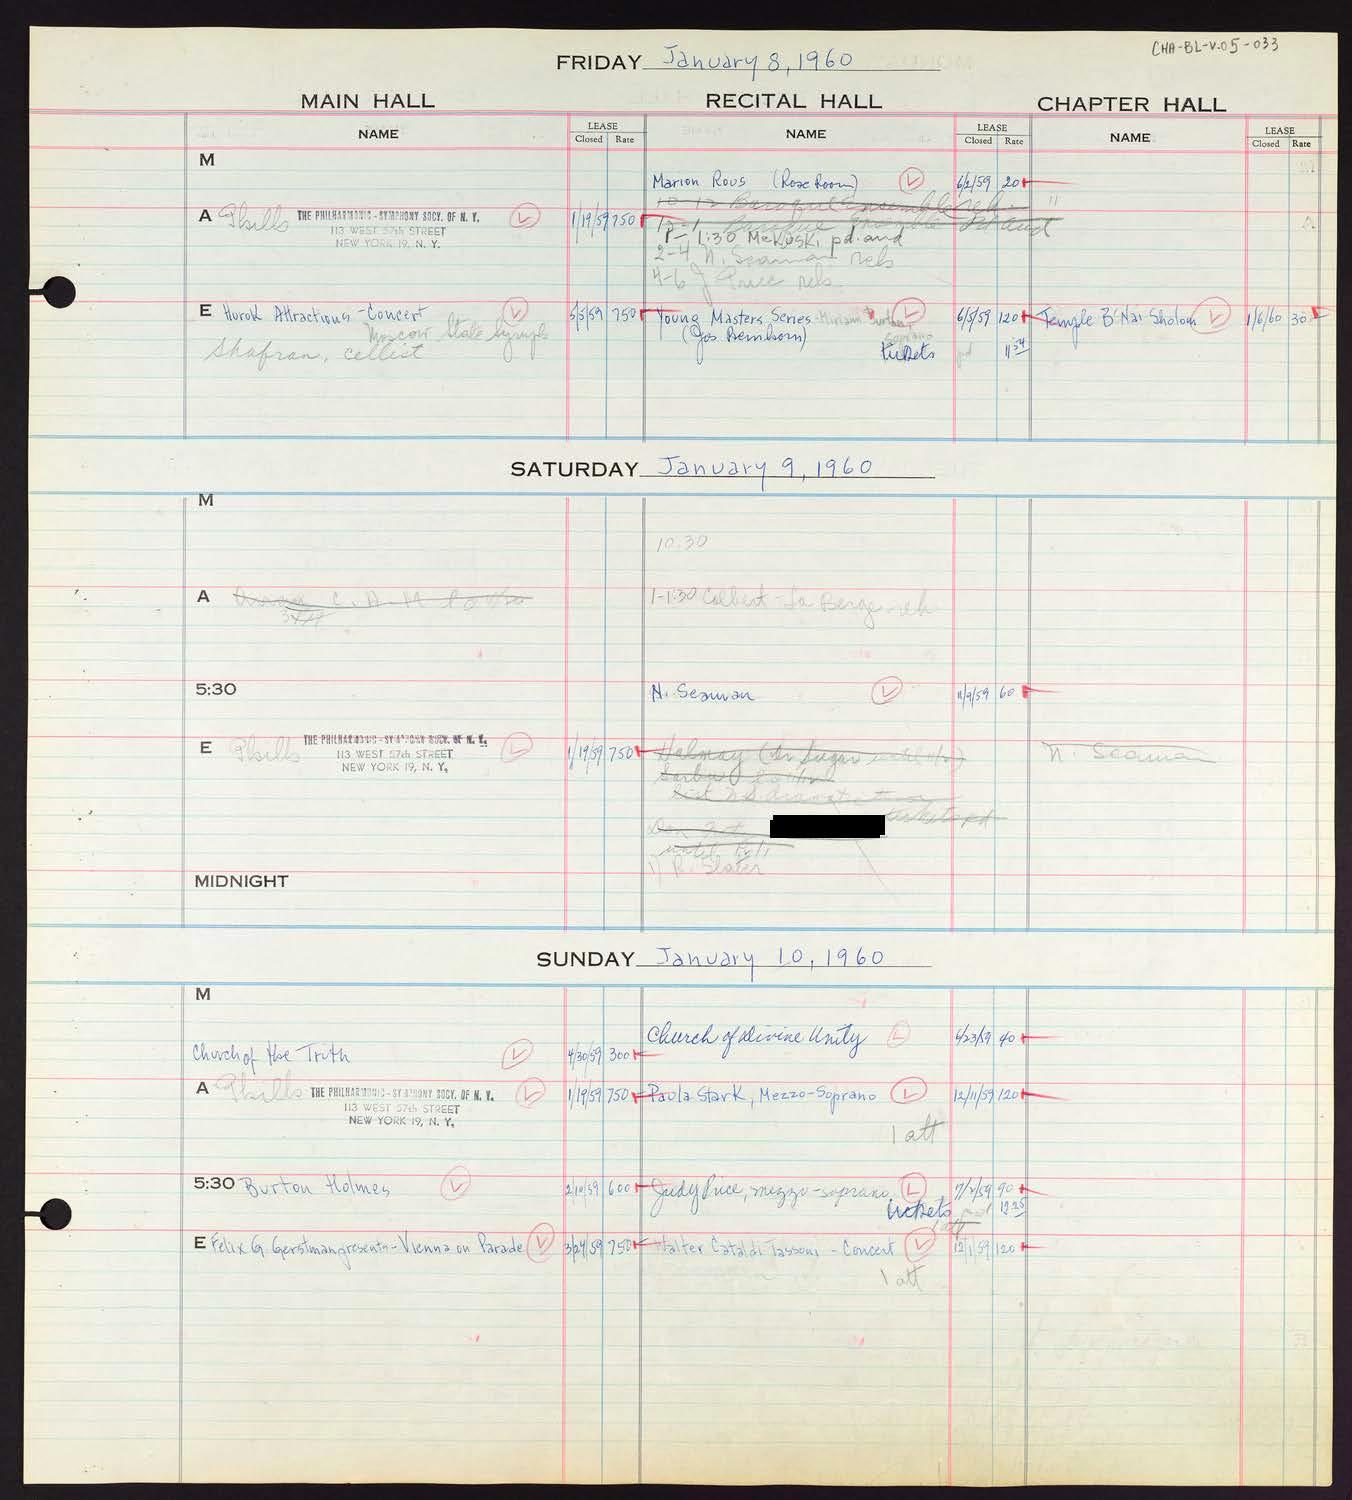 CHA-BL-V.05-033
FRIDAY January 8, 1960
MAIN HALL RECITAL HALL CHAPTER HALL
NAME LEASE Closed Rate NAME LEASE Closed Rate NAME LEASE Closed Rate
M
Marion Rous (Rose Room) 6/2/59 20
10-12 Baroque Ensemble reh.
A THE PHILHARMONIC-SYMPHONY SOCY. OF N. Y. 1/19/59 750
113 WEST 57th STREET
NEW YORK 19, N. Y.
Baroque Ensemble
1-1:30 McKoski pd. and
2-4 N. Seaman reh
4-6 J Price reh.
E Hurok Attractions - Concert 5/5/59 750 Young Masters Series - Miriam Burton, soprano 6/5/59 120 Temple B'Nai Sholom 1/6/60 30
Moscow State Symph
(Jos Rembom)
Shafran, cellist
tickets pd 11 54
SATURDAY January 9, 1960
M
10:30
A C.A.M.
1-1:30 Colbert - La Berge reh
5:30 N. Seaman 11/9/59 60
E THE PHILHARMONIC-SYMPHONY SOCY. OF N. Y. 1/19/59 750 N. Seaman
113 WEST 57th STREET
NEW YORK 19, N. Y.
until
1) R. Slater
MIDNIGHT
SUNDAY January 10, 1960
M
Church of Divine Unity 6/23/59 40
Church of the Truth 4/30/59 300
A THE PHILHARMONIC-SYMPHONY SOCY. OF N. Y. 1/19/59 750 Paula Stark, Mezzo-Soprano 12/11/59 120
113 WEST 57th STREET
NEW YORK 19, N. Y.
1 att
5:30 Burton Holmes 2/10/59 600 Judy Price, mezzo-soprano 7/2/59 90
tickets pd 12 25
1 att
E Felix G. Gerstman presents - Vienna on Parade 3/24/59 750 Walter Cataldi Tassoni - Concert 12/1/59 120
1 att